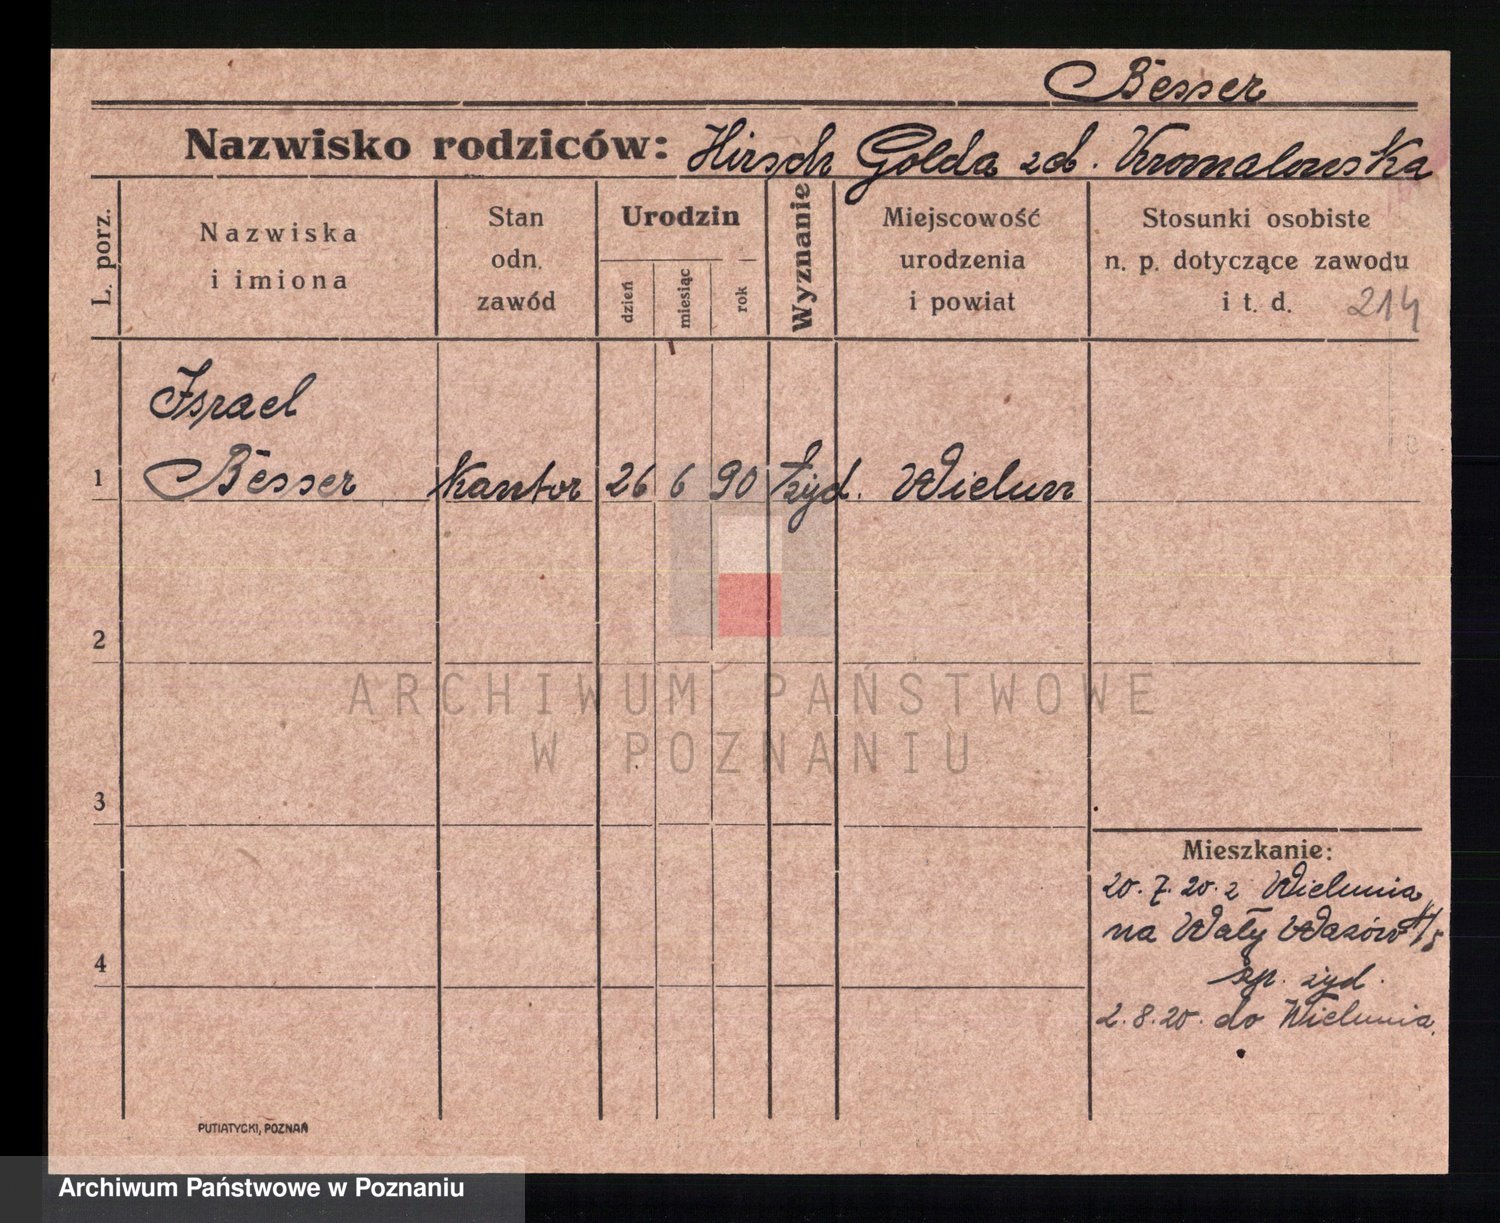 Besser
Nazwisko rodziców: Hirsch Golda zd. Kromalowska
L. porz.
Nazwiska
i imiona
Stan
odn.
zawód
Urodzin
dzień
miesiąc
rok
Wyznanie
Miejscowość
urodzenia
i powiat
Stosunki osobiste
n. p. dotyczące zawodu
i t. d. 214
Israel
1 Besser Kantor 26 6 90 żyd. Wielun
2
ARCHIWUM PAŃSTWOWE
W POZNANIU
3
Mieszkanie:
20.7.20. z Wielunia
na Wały Wazów /5
4
żyd.
2.8.20. do Wielunia.
PUTIATYCKI, POZNAŃ
Archiwum Państwowe w Poznaniu